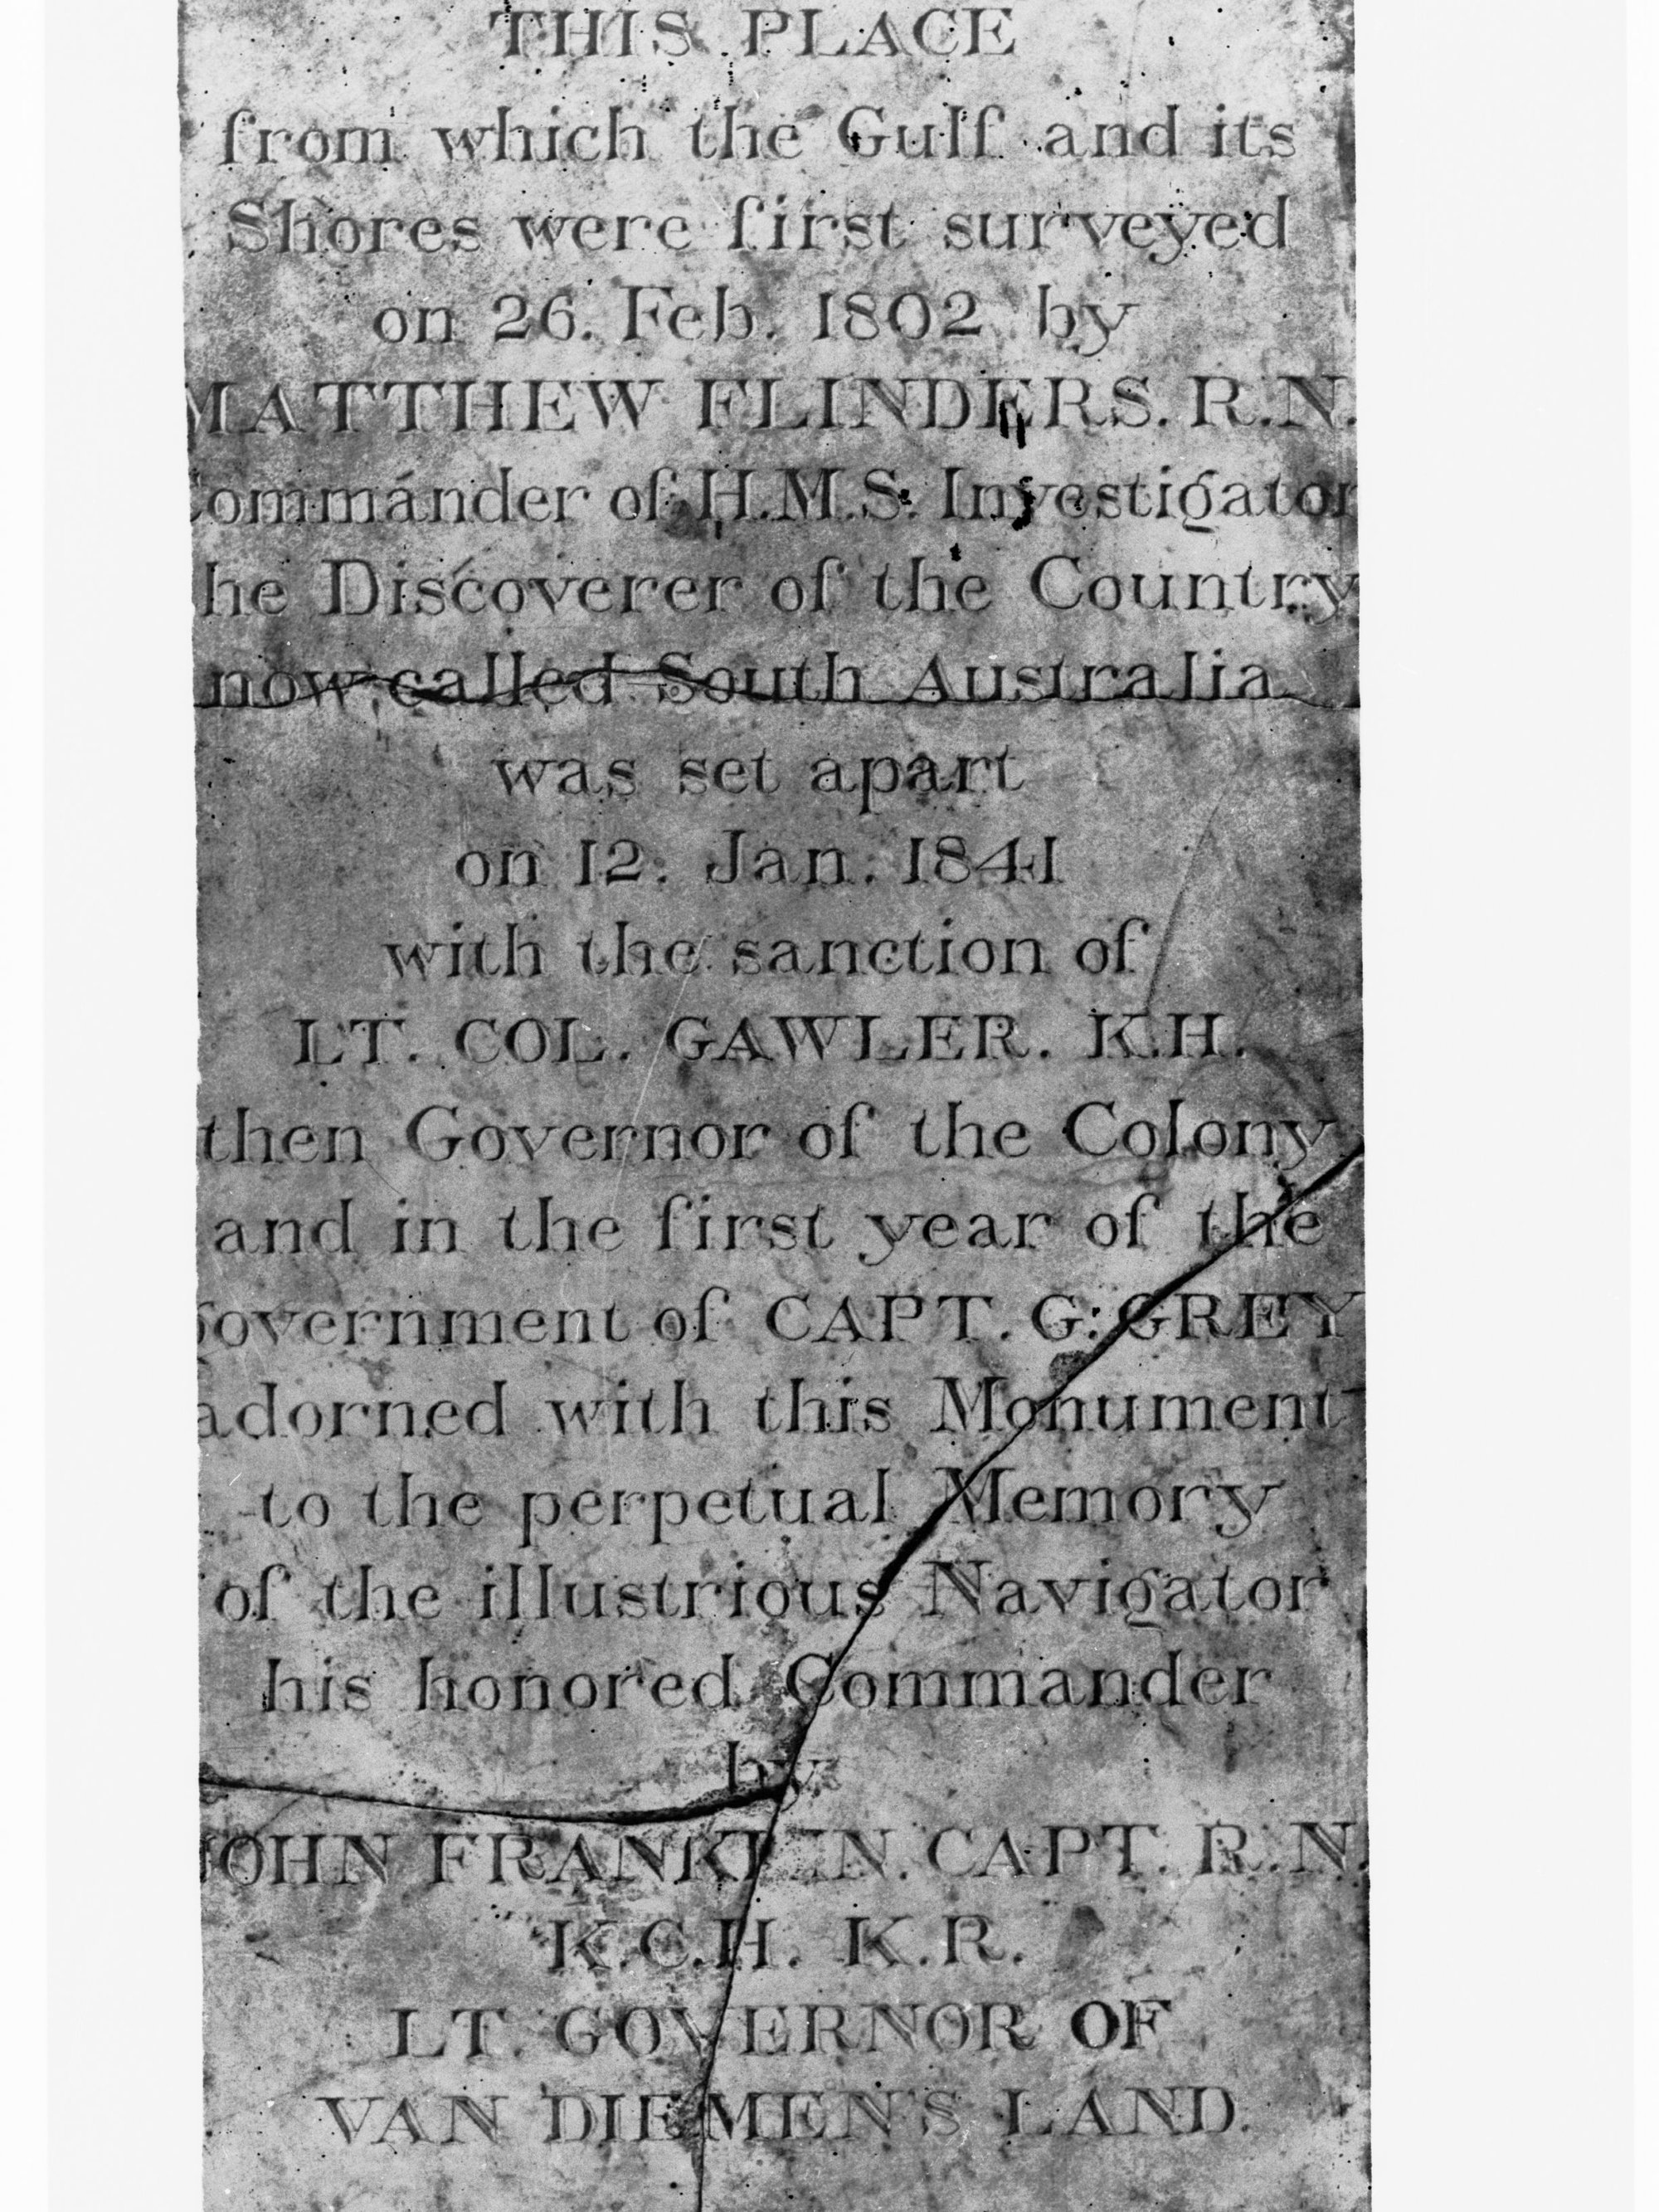 THIS PLACE
from which the Gulf and its
Shores were first surveyed
on 26. Feb. 1802 by
MATTHEW FLINDERS. R.N.
Commander of H.M.S. Investigator
he Discoverer of the Country
now called South Australia
was set apart
on 12. Jan. 1841
with the sanction of
LT. COL. GAWLER. K.H.
then Governor of the Colony
and in the first year of the
Government of CAPT. G. GREY
adorned with this Monument
to the perpetual Memory
of the illustrious Navigator
his honored Commander
by
JOHN FRANKLIN. CAPT. R.N.
K.C.H. K.R.
LT. GOVERNOR OF
VAN DIEMEN'S LAND.